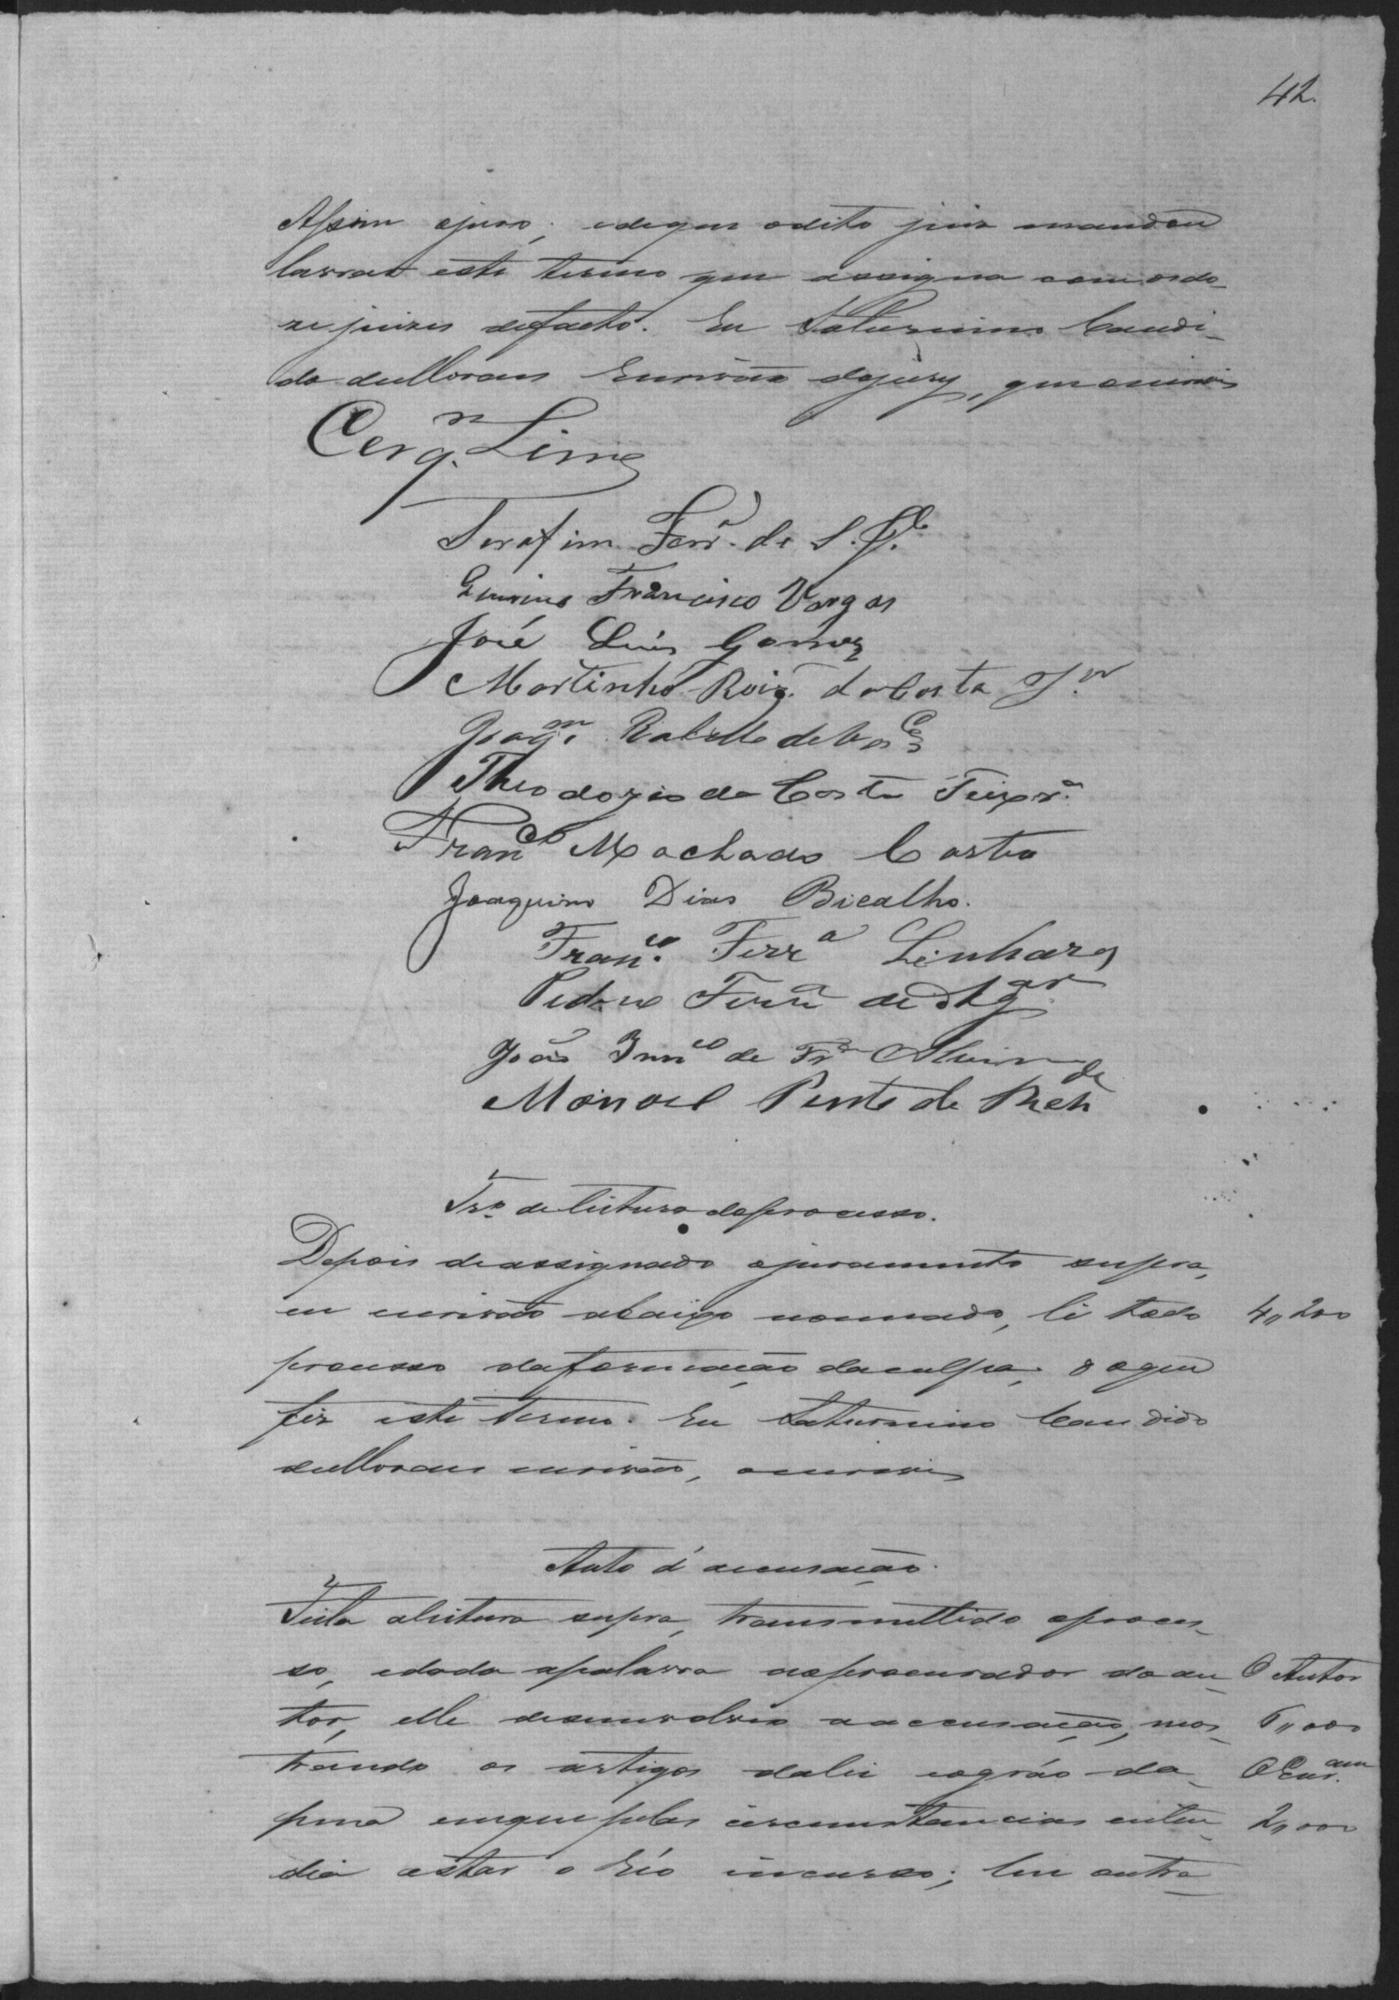 42.
Assim o juro; e de que o dito juiz mandou
lavrar este termo que assigna com os do-
ze juizes de facto. Eu Saturnino Candi-
do de Moraes Escrivão do jury, que o escrevi
Cerq.ra Lima
Serafim Ferr.a de S. J.e
Francisco Vargas
José Luis Gomes
Martinho Roiz. da Costa J.or
Joaq.m Rabello de Vas.cos
Theodozio da Costa Teixr.a
Fran.co Machado Castro
Joaquim Dias Bicalho.
Fran.co Ferr.a Linhares
Pedro Ferr.a de Ag.ar
João Inn.co de Fr.a
Manoel Pinto de
Tr.o de leitura do processo.
Depois de assignado o juramento supra,
eu escrivão abaixo nomeado, li todo 4,,200
processo da formação da culpa; do que
fiz este termo. Eu Saturnino Candido
de Moraes escrivão, o escrevi
Auto d'accusação.
Feita a leitura supra, transmettido o proces-
so, e dada a palavra ao procurador do au- O Autor
tor, elle desenvolveo a accusação, mos- 6,,000
trando os artigos da lei e o gráo da O Escr.am
pena em que pelas circumstancias enten- 2,,000
dia estar o Réo incurso; Em outra